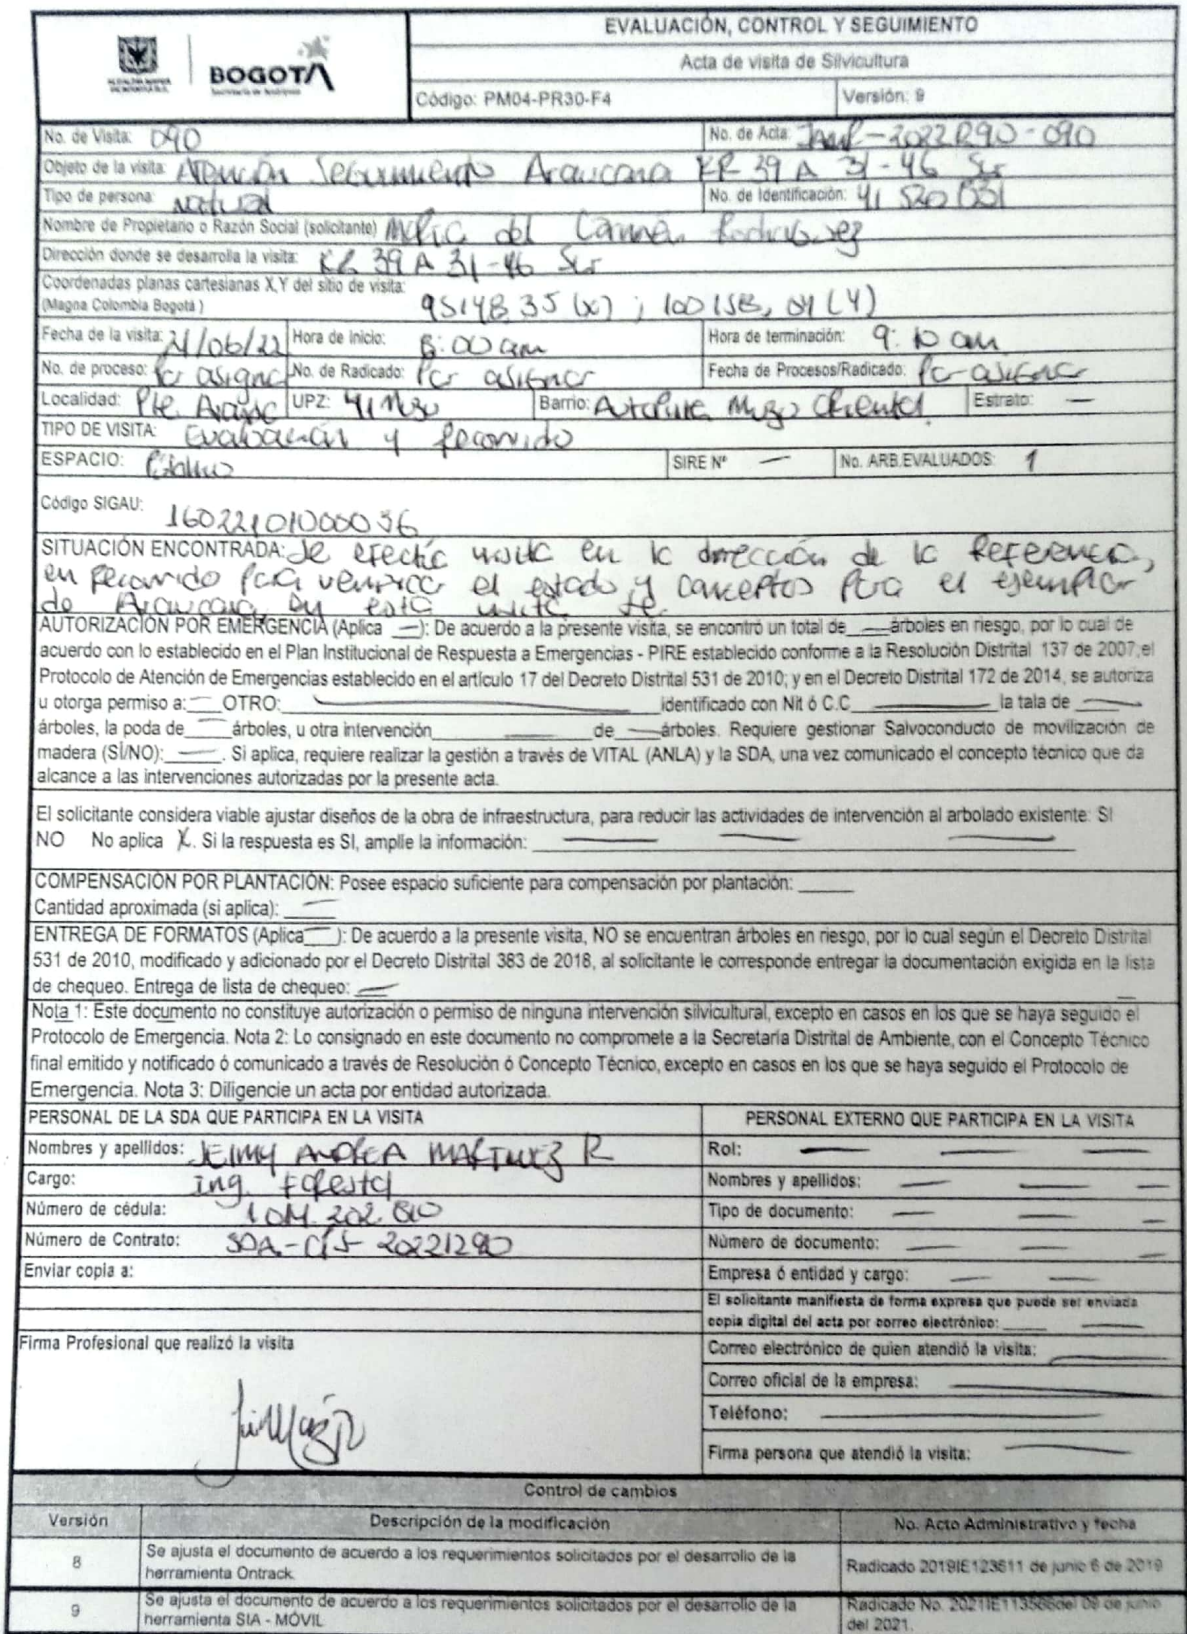 EVALUACIÓN, CONTROL Y SEGUIMIENTO
BOGOTÁ
Acta de visita de Silvicultura
Código: PM04-PR30-F4 Versión: 9
No. de Visita: 090 No. de Acta: 2022R90-090
Objeto de la visita: Atención Seguimiento Araucaria KR 39 A 31-46 Sur
Tipo de persona: Natural No. de Identificación: 41 520
Nombre de Propietario o Razón Social (solicitante) Maria del Carmen Rodriguez
Dirección donde se desarrolla la visita: KR 39 A 31-46 Sur
Coordenadas planas cartesianas X,Y del sitio de visita:
(Magna Colombia Bogotá )
Fecha de la visita: 21/06/22 Hora de Inicio: 8:00 am Hora de terminación: 9:10 am
No. de proceso: Por asignar No. de Radicado: Por asignar Fecha de Procesos/Radicado: Por asignar
Localidad: Pte Aranda UPZ: 41 Muzu Barrio: Autopista Muzu Oriental Estrato: —
TIPO DE VISITA: Evaluación y Recorrido
ESPACIO: Público SIRE N° — No. ARB.EVALUADOS: 1
Código SIGAU: 16022101000036
SITUACIÓN ENCONTRADA: Se efectúa visita en la dirección de la Referencia,
en Recorrido para verificar el estado y conceptos para el ejemplar
de Araucaria, en esta visita se
AUTORIZACIÓN POR EMERGENCIA (Aplica —): De acuerdo a la presente visita, se encontró un total de — árboles en riesgo, por lo cual de
acuerdo con lo establecido en el Plan Institucional de Respuesta a Emergencias - PIRE establecido conforme a la Resolución Distrital 137 de 2007;el
Protocolo de Atención de Emergencias establecido en el artículo 17 del Decreto Distrital 531 de 2010; y en el Decreto Distrital 172 de 2014, se autoriza
u otorga permiso a: — OTRO: — identificado con Nit ó C.C — la tala de —
árboles, la poda de — árboles, u otra intervención — de — árboles. Requiere gestionar Salvoconducto de movilización de
madera (SÍ/NO): —. Si aplica, requiere realizar la gestión a través de VITAL (ANLA) y la SDA, una vez comunicado el concepto técnico que da
alcance a las intervenciones autorizadas por la presente acta.
El solicitante considera viable ajustar diseños de la obra de infraestructura, para reducir las actividades de intervención al arbolado existente: SI
NO No aplica X. Si la respuesta es SI, amplíe la información: — — —
COMPENSACIÓN POR PLANTACIÓN: Posee espacio suficiente para compensación por plantación:
Cantidad aproximada (si aplica): —
ENTREGA DE FORMATOS (Aplica — ): De acuerdo a la presente visita, NO se encuentran árboles en riesgo, por lo cual según el Decreto Distrital
531 de 2010, modificado y adicionado por el Decreto Distrital 383 de 2018, al solicitante le corresponde entregar la documentación exigida en la lista
de chequeo. Entrega de lista de chequeo: —
Nota 1: Este documento no constituye autorización o permiso de ninguna intervención silvicultural, excepto en casos en los que se haya seguido el
Protocolo de Emergencia. Nota 2: Lo consignado en este documento no compromete a la Secretaría Distrital de Ambiente, con el Concepto Técnico
final emitido y notificado ó comunicado a través de Resolución ó Concepto Técnico, excepto en casos en los que se haya seguido el Protocolo de
Emergencia. Nota 3: Diligencie un acta por entidad autorizada.
PERSONAL DE LA SDA QUE PARTICIPA EN LA VISITA PERSONAL EXTERNO QUE PARTICIPA EN LA VISITA
Nombres y apellidos: JEIMY ANDREA MARTINEZ R Rol: — — —
Cargo: Ing. Forestal Nombres y apellidos: — — —
Número de cédula: Tipo de documento: — — —
Número de Contrato: SDA-CPS-20221290 Número de documento: — — —
Enviar copia a: Empresa ó entidad y cargo: — — —
El solicitante manifiesta de forma expresa que puede ser enviada
copia digital del acta por correo electrónico: —
Firma Profesional que realizó la visita Correo electrónico de quien atendió la visita: —
Correo oficial de la empresa: —
Teléfono: —
Firma persona que atendió la visita: —
Control de cambios
Versión Descripción de la modificación No. Acto Administrativo y fecha
8 Se ajusta el documento de acuerdo a los requerimientos solicitados por el desarrollo de la
herramienta Ontrack. Radicado 2019IE123611 de junio 6 de 2019
9 Se ajusta el documento de acuerdo a los requerimientos solicitados por el desarrollo de la
herramienta SIA - MÓVIL Radicado No. 2021IE113588del 09 de junio
del 2021.